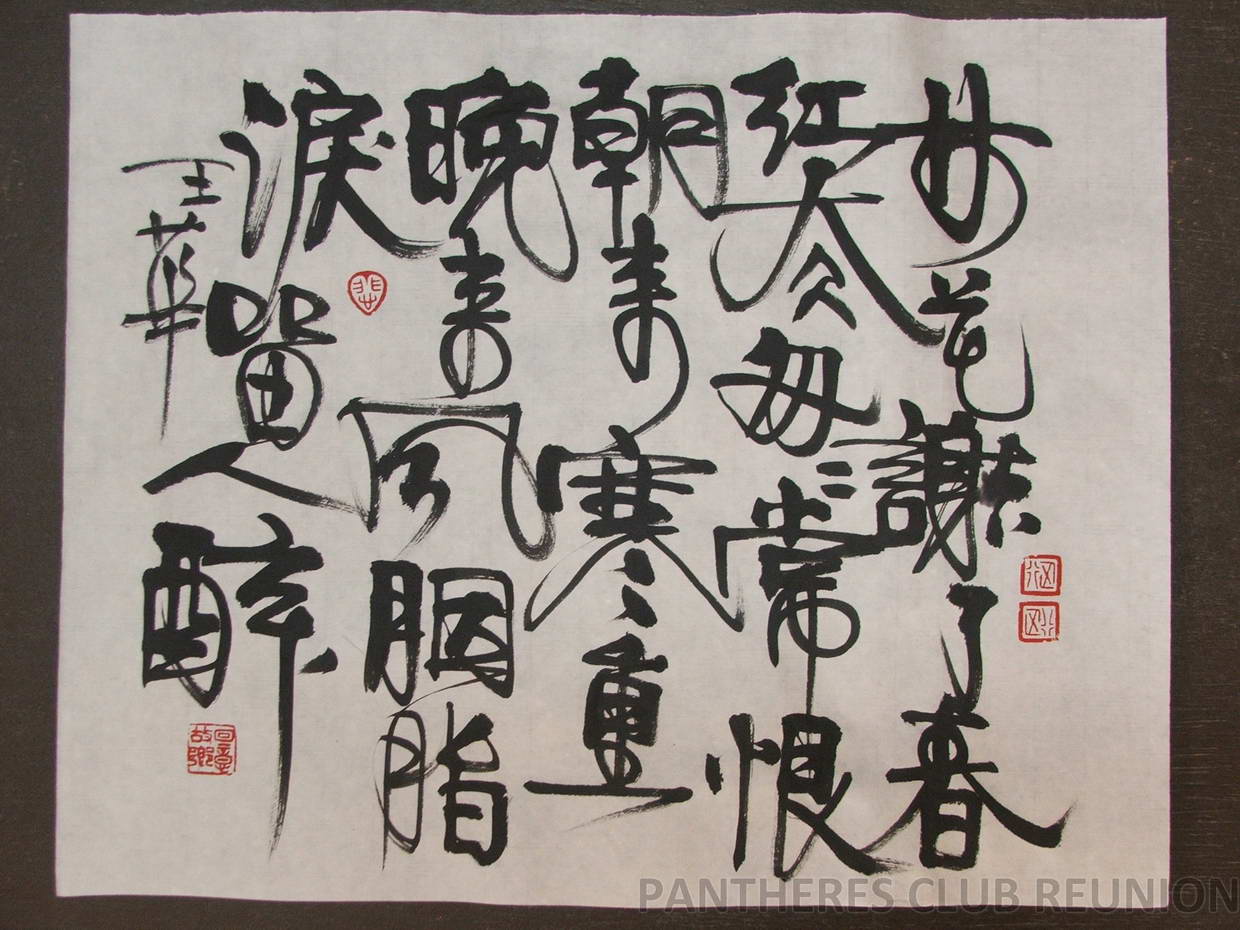 林花謝了春
红太匆々常恨
朝来寒重
晚来风胭脂
淚留人醉
王華
PANTHERES CLUB REUNION